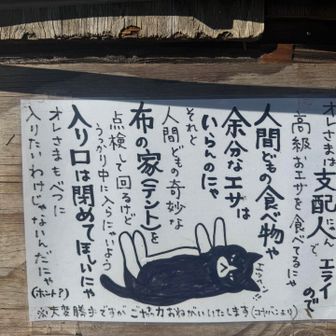 オレさまは支配人で、エライので
高級おエサを食べてるにゃ
人間どもの食べ物や
余分なエサは
いらんのにゃ
それと
人間どもの奇妙な
布の家(テント)を
点検して回るけど
うっかり中に入らにゃいよう
入り口は閉めてほしいにゃ
オレさまもべつに
入りたいわけじゃないんだにゃ
(ホント?)
※大変勝手ですが ご協力おねがいいたします